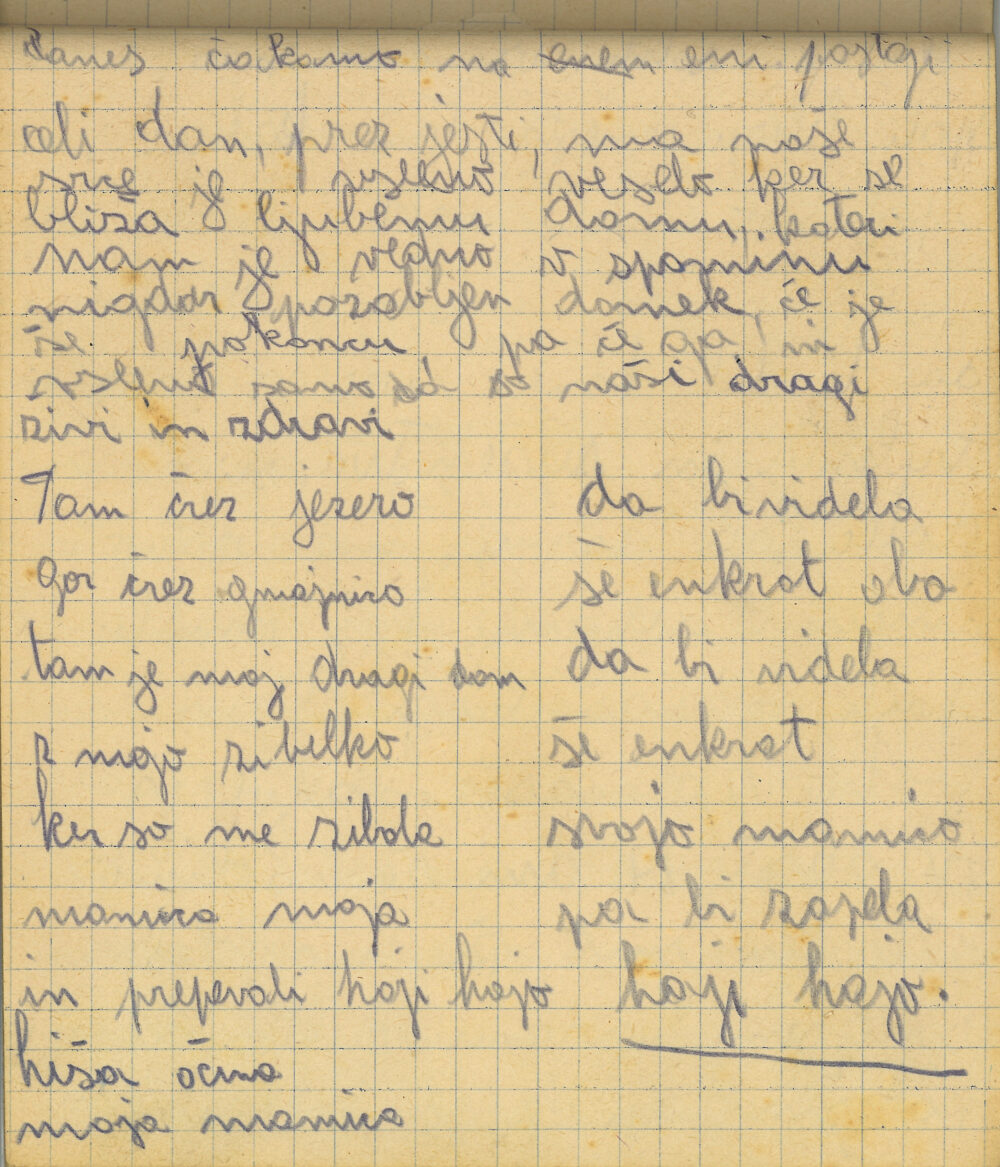 danes čakamo na enem eni postaji
celi dan, prez jesti, ma naše
srce je vseeno veselo ker se
bliža ljubemu domu, kateri
nam je vedno v spominu
nigdar pozabljen domek, če je
še pokoncu pa če ga ni
vseeno samo da so naši dragi
zivi in zdravi
Tam črez jezero
gor črez gmajnico
tam je moj dragi dom
z mojo zibelko
ker so me zibale
mamica moja
in prepevali haji hajo
hiša očina
moja mamica
da bi videla
še enkrat oba
da bi videla
še enkrat
svojo mamico
pa bi zapela
haji hajo.